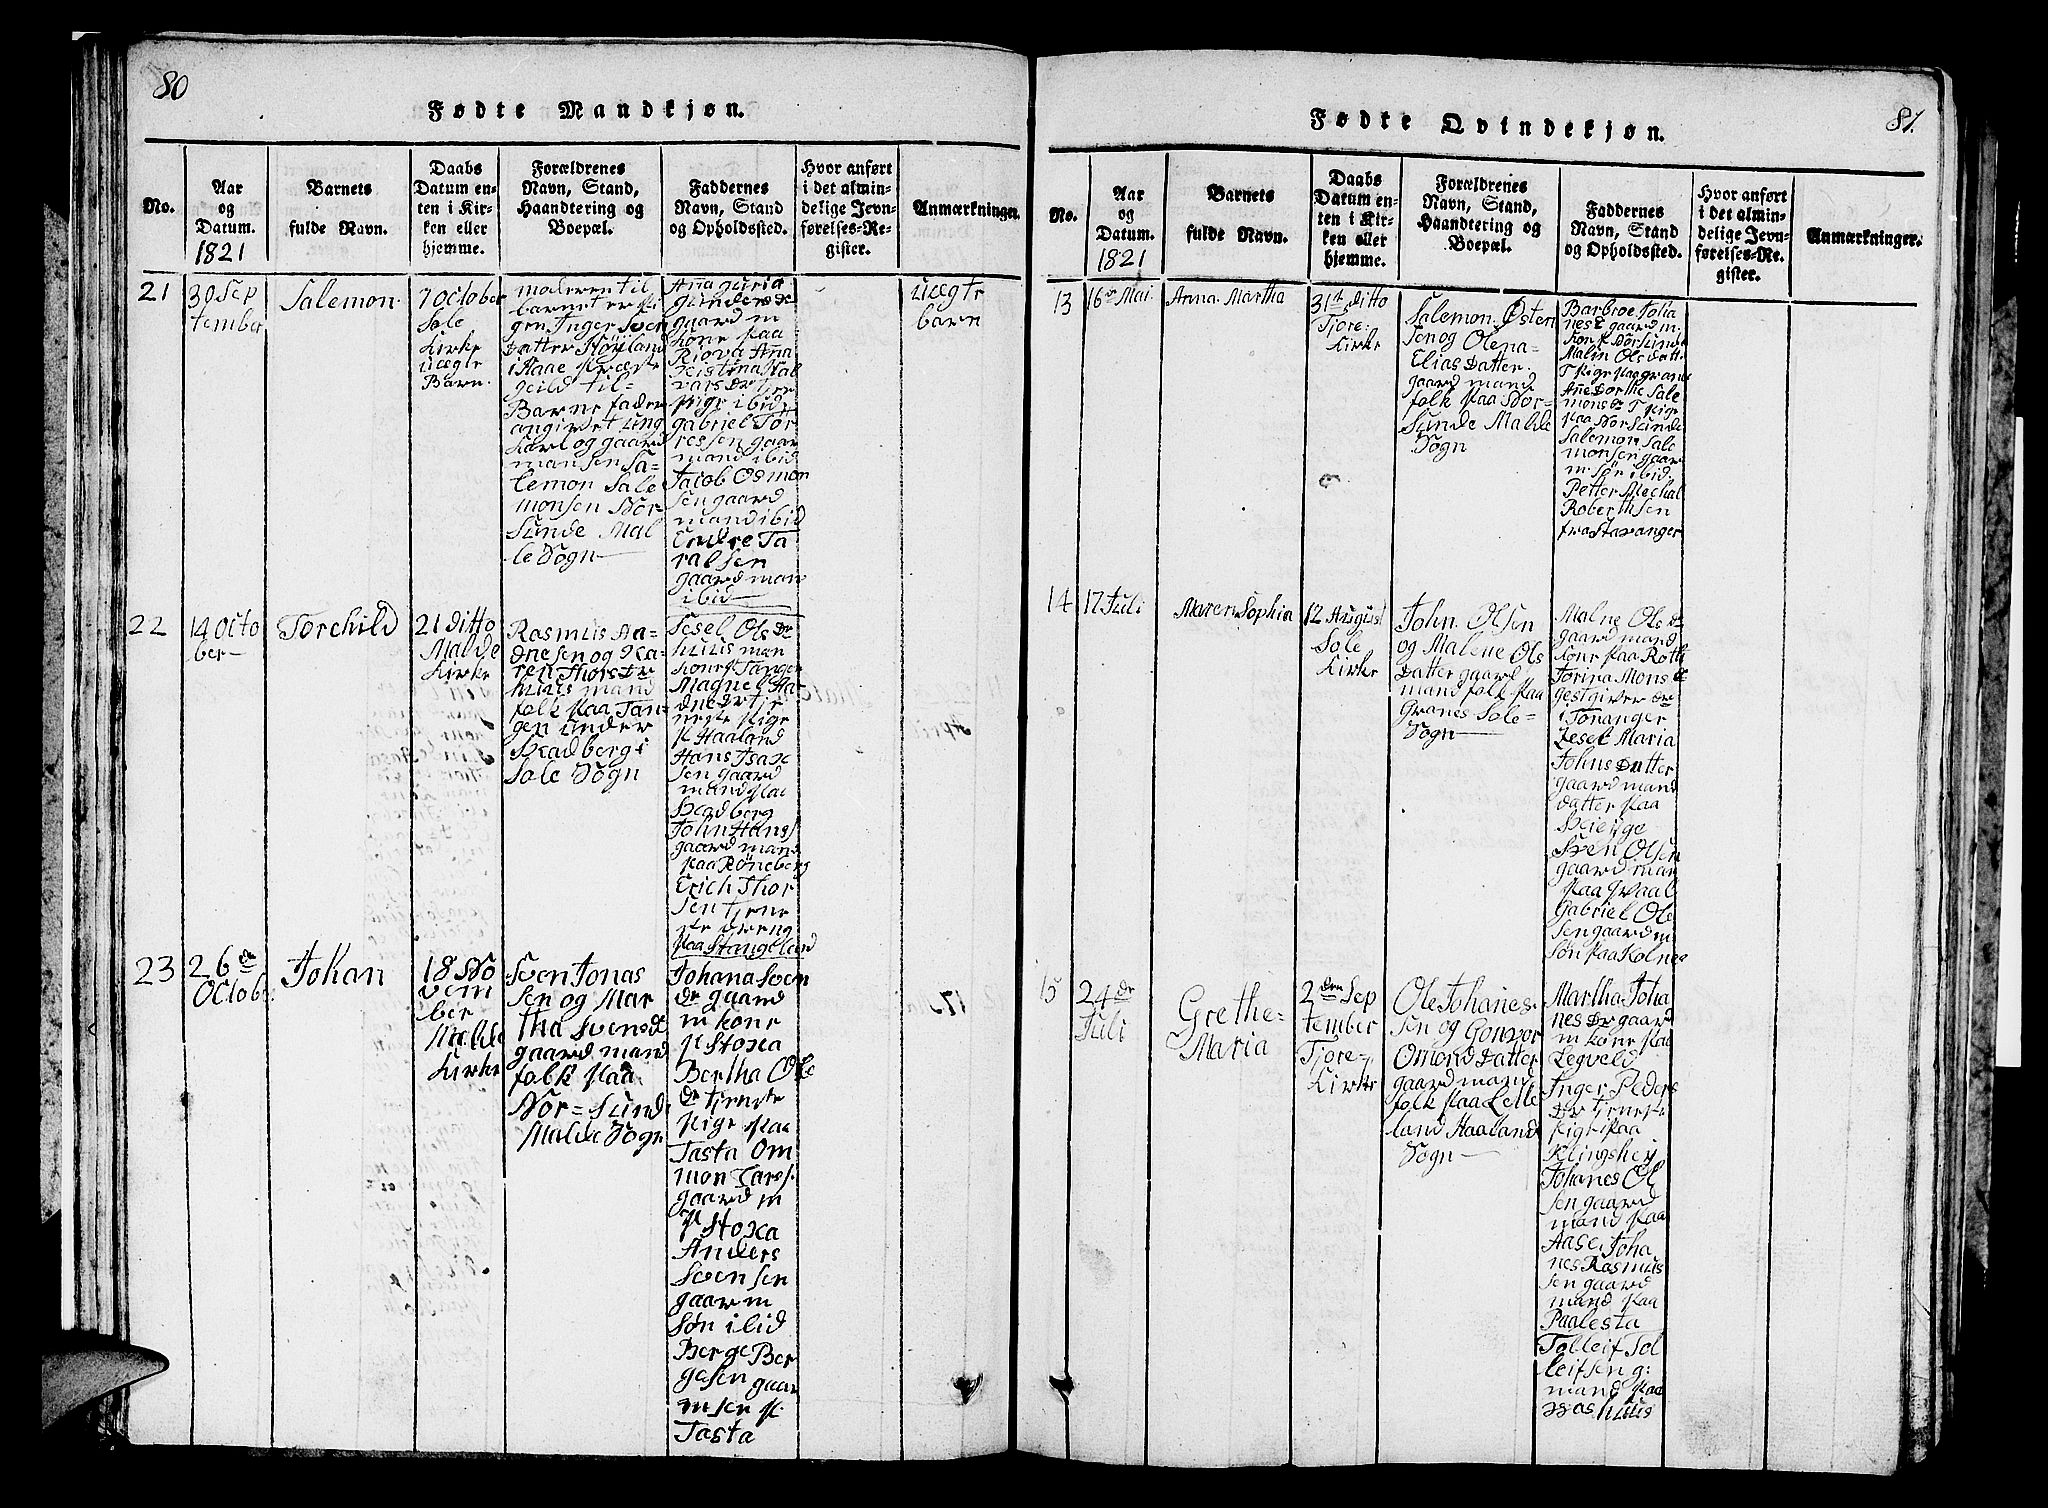 80
Fødte Mandkjøn.
No.
Aar
og
Datum.
1821
Barnets
fulde Navn.
Daabs
Datum en-
ten i Kir-
ken eller
hjemme.
Forældrenes
Navn, Stand,
Haandtering og
Boepæl.
Faddernes
Navn, Stand
og Opholdssted.
Hvor anført
i det almin-
delige Jevn-
førelses-Re-
gister.
Anmærkninger.
21
30 Sep
tember
Salemon.
7 October
Sole
Kirke
uægte
Barn.
moderen til
barnet er Pi
gen Inger Sven
Datter
i Haae Præste
geild til-
Barne fader
angivet ung
karl og gaard
mansen Sa-
lemon Sale
monsen Nor-
Sunde Mal
le Sogn
Aña Guria
Gunders De
gaard m
kone paa
Riova Aña
Kistina Hal
vars Dr tjen
Pige ibid
Gabriel Tor
ressen gaar
mand ibid
Jacob Osmon
sen gaard
mand ibid
Endre Ta
ralsen
gaard man
ibid
uægte
barn
22
14 Octo
ber
Torchild
21 ditto
Malde
Kirke
Rasmus Aa-
dnesen og Ka-
ren Thors Dr
huus mand
folk paa Tan-
gen under
Skadberg i
Sole Sogn
Tesel Ols Dr
huus man
kone p Tangen
Magnel Aa-
dne Dr tje
neste Pige
p Haaland
Hans Isax
sen gaard
mand paa
Skadberg
John Hans
gaard mand
paa Röneberg
Erich Thor
sen tjene
ste dreng
paa Stangeland
23
26 de
October
Johan
18 No
vem
ber
Malde
Kirke
Sven Jonas
sen og Mar
tha Svensdt
gaard mand
folk paa
Nor=Sund
Malde Sogn
Johana Sven
Dr gaard
m kone
p Stoxa
Bertha Ole
Dr tjeneste
Pige paa
Tasta Om
mon Larss.
gaard m
p Stoxa
Anders
Svensen
gaar m
Søn ibid
Berge Ber
gesen gaar
msen p.
Tasta
81.
Fødte Qvindekjøn.
No.
Aar
og
Datum.
1821
Barnets
fulde Navn.
Daabs
Datum en-
ten i Kir-
ken eller
hjemme.
Forældrenes
Navn, Stand,
Haandtering og
Boepæl.
Faddernes
Navn, Stand
og Opholdssted.
Hvor anført
i det almin-
delige Jevn-
førelses-Re-
gister.
Anmærkninger.
13
16 de Mai.
Anna Martha
31 t ditto
Tjore-
Kirke
Salemon Østen
sen og Olena
Elias Datter.
gaard mand
folk paa Nor-
Sunde Malde
Sogn
Barbroe Joha
nes d gaard m.
kone p Nor Sunde
Malin Ols datt
T Pige paa grane
Añe Dorthe Sale
mons Dr T Pige
paa Nor Sunde
Salemon Sale
monsen gaar
m søn ibid
Petter Mechal
Roberthsen
fra Stavanger
14
17 Juli
Maren Sophia
12 August
Sole
Kirke
John Olsen
og Malene Ols
Datter gaard
mand folk paa
Granes Sole-
Sogn
Malne Ole Dr
gaard mand
kone paa Roth
Jorina Mons Dr
gestgiver Dr
i Tonanger
Lesel Maria
Johns Datter
gaard mand
datter paa
Sven Olsen
gaard man
paa
Gabriel Ole
sen gaard m
Søn paa Kolnes
15
24 de
Juli
Grethe-
Maria
2 den Sep
tember
Tjore-
Kirke
Ole Johanes-
sen og Gonvor
Omond Datter
gaard mand
folk paa Lelle
land Haaland
Sogn
Martha Joha
nes Dr gaard
m kone paa
Legveld
Inger Peders
Dr tjeneste
Pige paa
Klingshey
Johanes Ol
sen gaard
mand paa
Aase. Joha
nes Rasmus
sen gaard
mand paa
Paalesta
Tolleif Tol
leifsen g:
mand paa